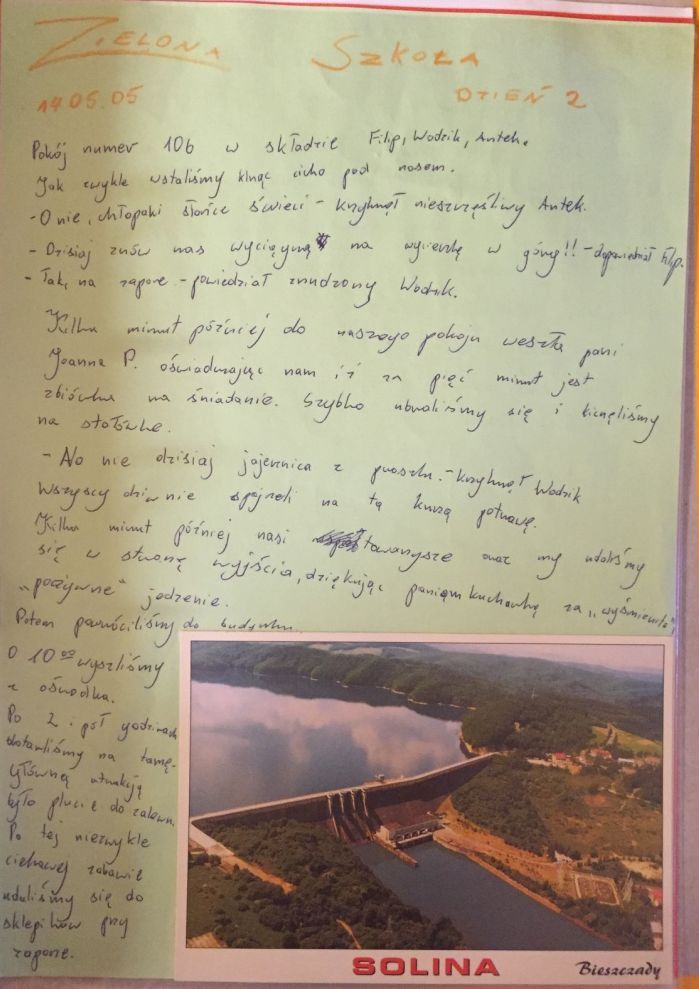 ZIELONA SZKOŁA
14.05.05 DZIEŃ 2
Pokój numer 106 w składzie Filip, Wodzik, Antek.
Jak zwykle wstaliśmy klnąc cicho pod nosem.
- O nie, chłopaki słońce świeci - krzyknął nieszczęśliwy Antek.
- Dzisiaj znów nas wyciągną na wycieczkę w góry!! - dopowiedział Filip.
- Tak, na zaporę - powiedział znudzony Wodzik.
Kilka minut później do naszego pokoju weszła pani
Joanna P. oświadczając nam iż za pięć minut jest
zbiórka na śniadanie. Szybko ubraliśmy się i
na stołówkę.
- No nie dzisiaj jajecznica z proszku. - krzyknął Wodzik
Wszyscy dziwnie spojrzeli na tą kurzą potrawę.
Kilka minut później nasi towarzysze oraz my udaliśmy
się w stronę wyjścia, dziękując paniąm kucharką za "wyśmienite"
"pożywne" jedzenie.
Potem powróciliśmy do budynku.
O 10⁰⁰ wyszliśmy
z ośrodka.
Po 2 i pół godzinach
dotarliśmy na tamę.
Główną atrakcją
było plucie do zalewu.
Po tej niezwykle
ciekawej zabawie
udaliśmy się do
sklepików przy
zaporze.
SOLINA
Bieszczady